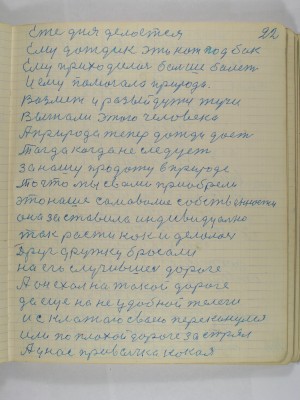 22
Еже дня делается
Ему дождик эти нот под бак
Ему приходилос болше болеть
И ему помогала природь.
Возмет и разыйдуть тучи
Выгнали этого человека
А природа тепер дождь дает
Тогда когда не следует
За нашу продоту в природе
То что мы с вами приобрели
это наша самоволие собственности
она заставила индивидуално
так расти как и делалос
Друг дружку бросали
на его случившися дороге
А он ехал на такой дороге
да еще на не удобной телеги
и с клажаю своею перекинулся
или по плохой дороге застрял
А у нас привычка какая